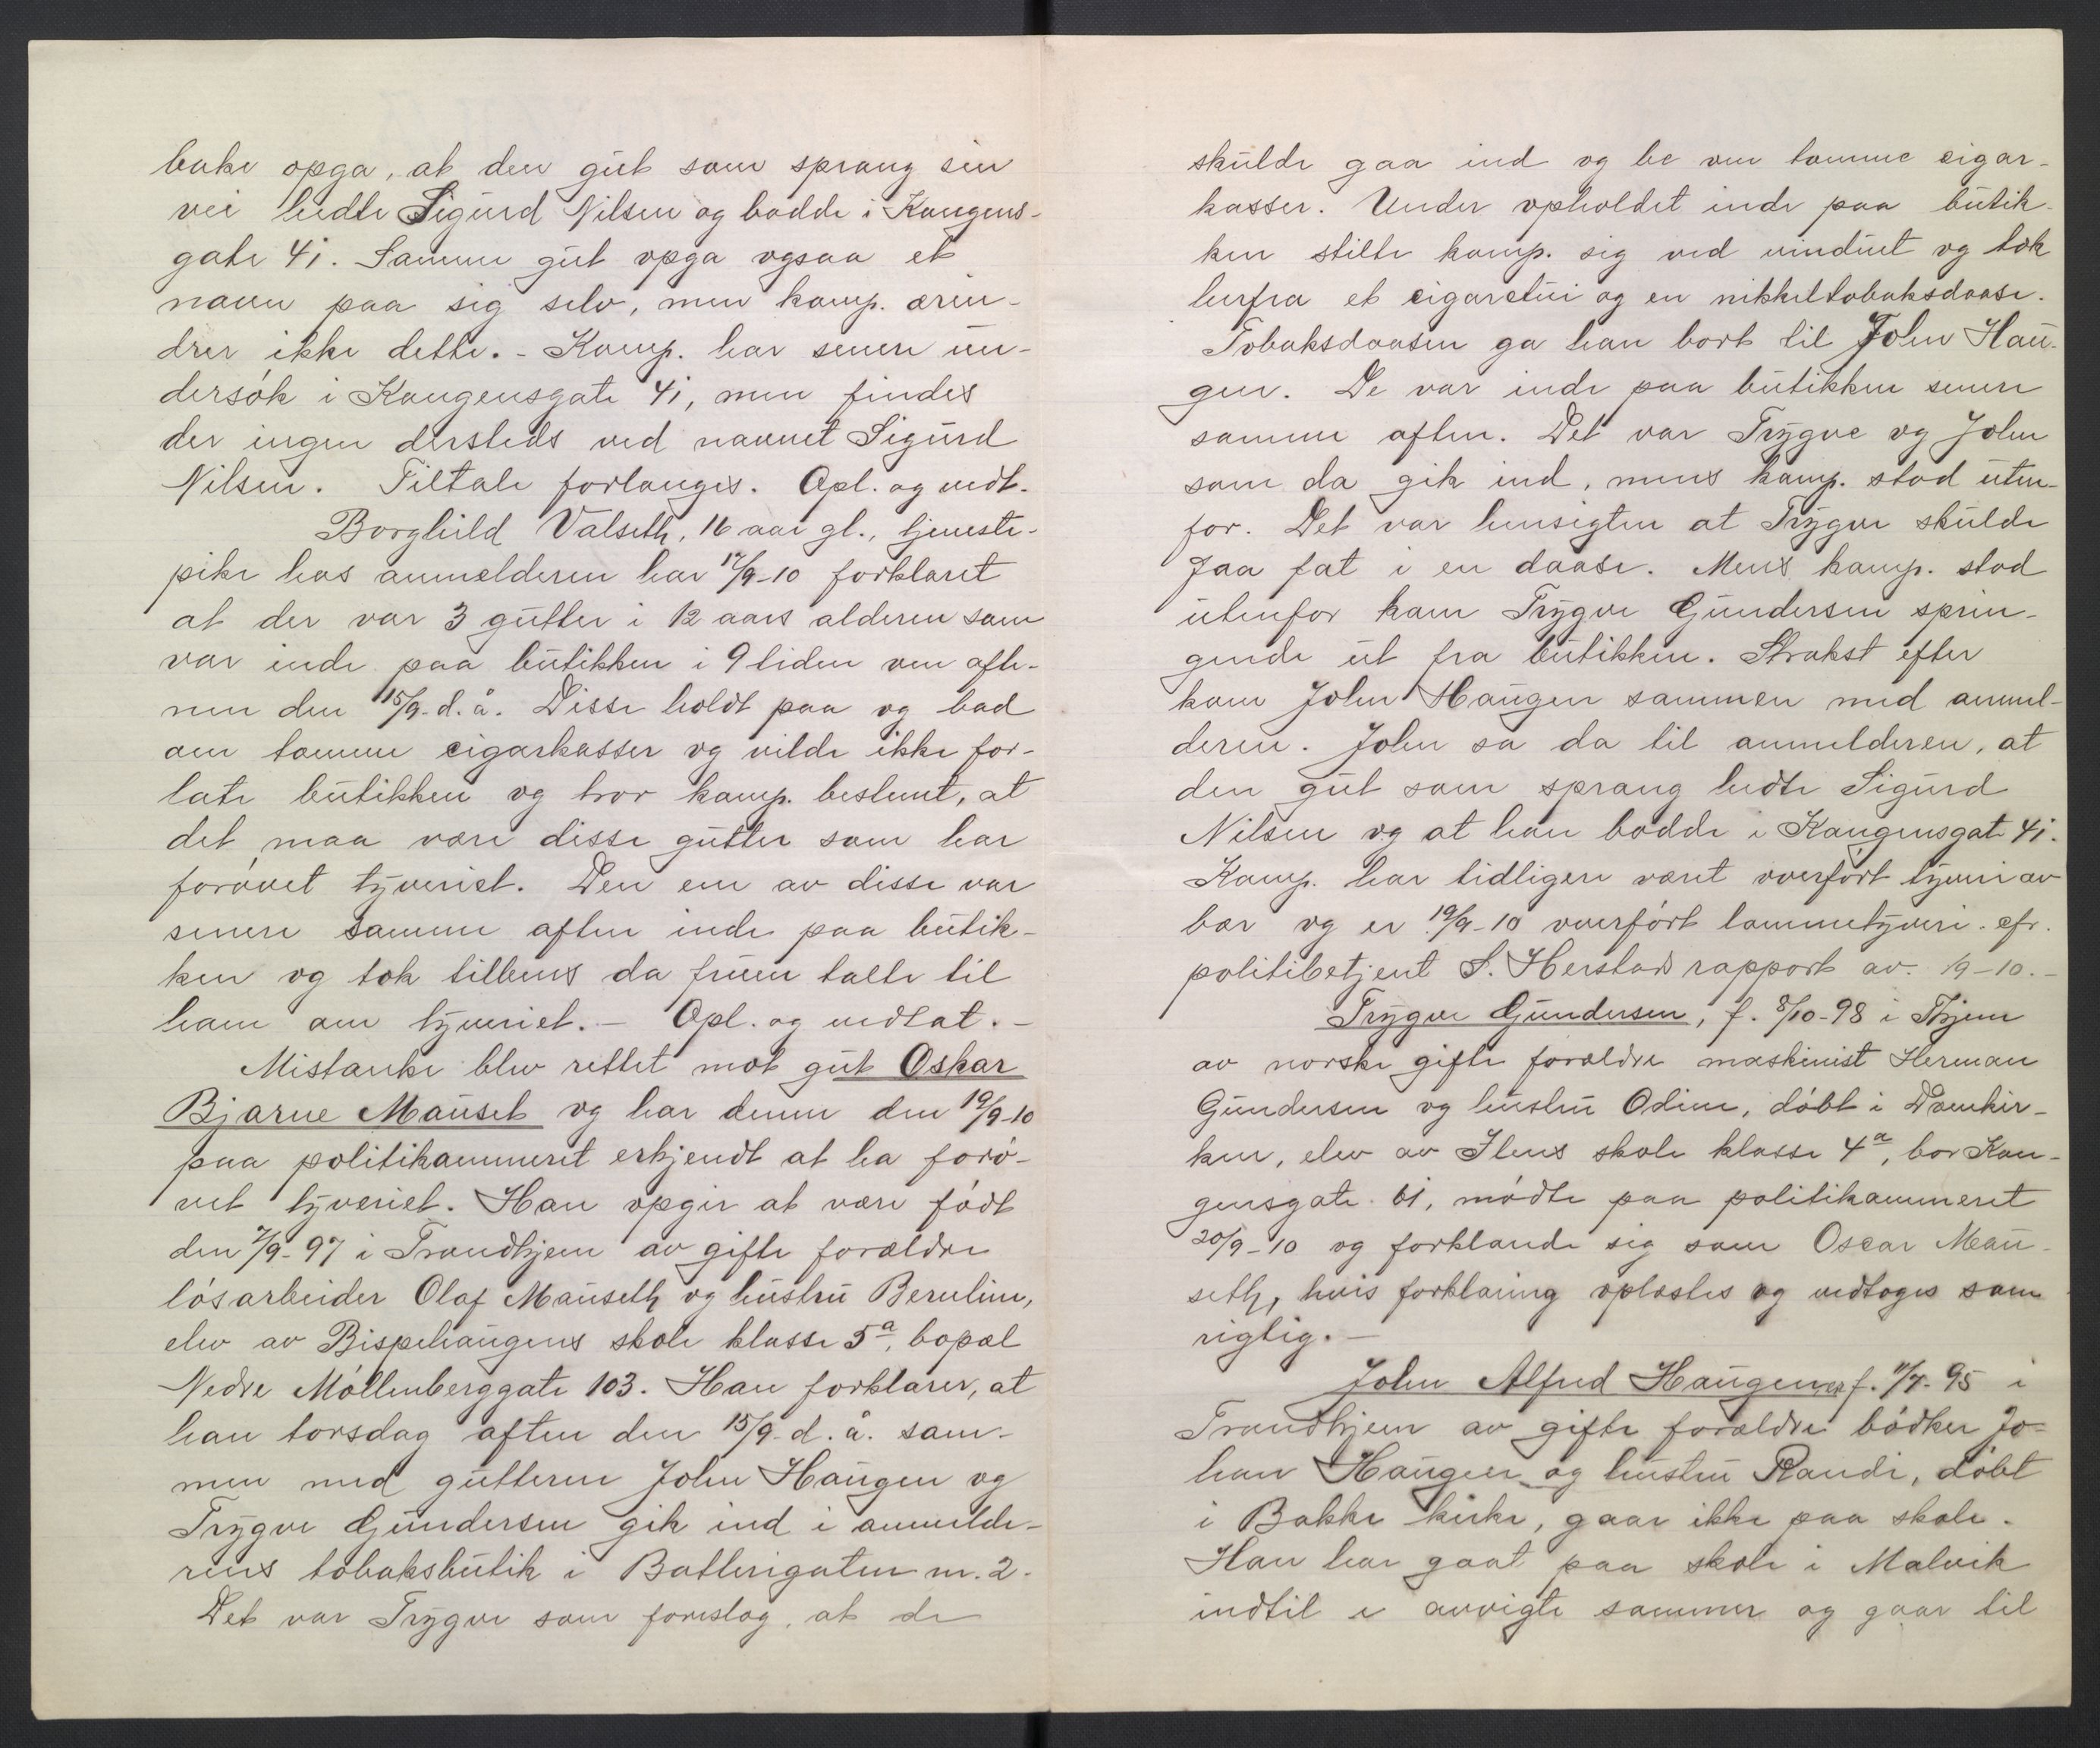 bake opga, at den gut som sprang sin
vei hedte Sigurd Nilsen og bodde i Kongens-
gate 4i. Samme gut opga ogsaa et
navn paa sig selv, men komp. erin-
drer ikke dette. - Komp. har senere un-
dersøk i Kongensgate 4i, men findes
der ingen dersteds ved navnet Sigurd
Nilsen. Tiltale forlanges. Opl. og vedt.
Borghild Valseth, 16 aar gl., tjeneste-
pike hos anmelderen har 17/9-10 forklaret
at der var 3 gutter i 12 aars alderen som
var inde paa butikken i 9 tiden om afte-
nen den 15/9 d. å. Disse holdt paa og bad
om tomme cigarkasser og vilde ikke for-
late butikken og tror komp. bestemt, at
det maa være disse gutter som har
forøvet tyveriet. Den ene av disse var
senere samme aften inde paa butik-
ken og tok tilbens da fruen talte til
ham om tyveriet. - Opl. og vedtat. -
Mistanke blev rettet mot gut Oskar
Bjarne Mauset og har denne den 19/9-10
paa politikammeret erkjendt at ha forø-
vet tyveriet. Han opgir at være født
den 7/9-97 i Trondhjem av gifte forældre
løsarbeider Olaf Mauseth og hustru Beruline,
elev av Bispehaugens skole klasse 5a, bopæl
Nedre Møllenberggate 103. Han forklarer, at
han torsdag aften den 15/9 d. å. sam-
men med gutterne John Haugen og
Trygve Gundersen gik ind i anmelde-
rens tobaksbutik i Batterigaten nr. 2.
Det var Trygve som foreslog, at de
skulde gaa ind og be om tomme cigar-
kasser. Under opholdet inde paa butik-
ken stilte komp. sig ved vinduet og tok
herfra et cigaretui og en nikkeltobaksdaase.
Tobaksdaasen ga han bort til John Hau-
gen. De var inde paa butikken senere
samme aften. Det var Trygve og John
som da gik ind, mens komp. stod uten-
for. Det var hensigten at Trygve skulde
faa fat i en daase. Mens komp. stod
utenfor kom Trygve Gundersen sprin-
gende ut fra butikken. Strakst efter
kom John Haugen sammen med anmel-
deren. John sa da til anmelderen, at
den gut som sprang hedte Sigurd
Nilsen og at han bodde i Kongensgate 4i.
Komp. har tidligere været overført tyveri av
bær og er 19/9-10 overført lommetyveri. cfr.
politibetjent S. Herstads rapport av. 19-10. -
Trygve Gundersen, f. 8/10-98 i Thjem
av norske gifte forældre maskinist Herman
Gundersen og hustru Odine, døbt i Domkir-
ken, elev av Ilens skole klasse 4a, bor Kon-
gensgate 61, mødte paa politikammeret
20/9-10 og forklarede sig som Oscar Mau-
seth, hvis forklaring oplæstes og vedtoges som
rigtig. -
John Alfred Haugen er f. 11/7-95 i
Trondhjem av gifte forældre bødker Jo-
han Haugen og hustru Randi, døbt
i Bakke kirke, gaar ikke paa skole.
Han har gaat paa skole i Malvik
indtil i avvigte sommer og gaar til